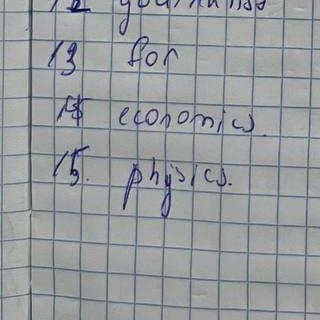 12
13 for
14 economics.
15. physics.